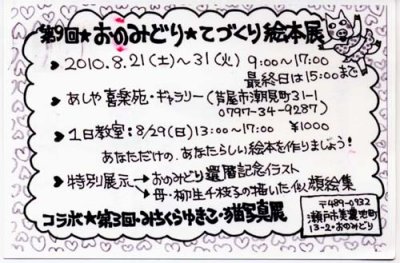 第9回★おのみどり★てづくり絵本展
2010.8.21(土)~31(火) 9:00~17:00
最終日は15:00まで
あしや喜楽苑・ギャラリー(芦屋市潮見町31-1
0797-34-9287)
1日教室:8/29(日)13:00~17:00 ¥1000
あなただけの、あなたらしい絵本を作りましょう!
特別展示→おのみどり還暦記念イラスト
→母・柳生千枝子の描いた似顔絵集
コラボ★第3回・みちくらゆきこ・猫写真展
〒489-0932
瀬戸市美濃池町
13-2・おのみどり